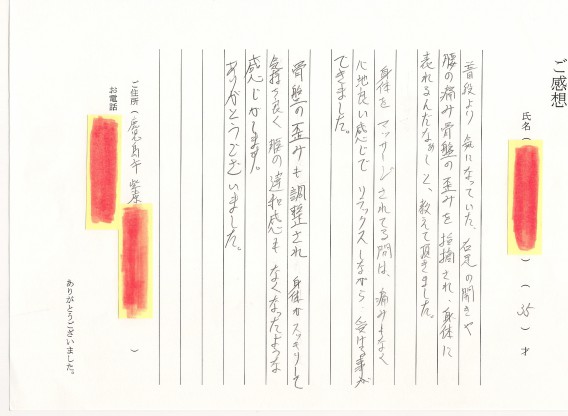 ご感想
氏名(　)(35)才
普段より 気になっていた、右足の開きや
腰の痛み骨盤の歪みを指摘され、身体に
表れるんだなぁーと、教えて頂きました。
身体を マッサージされてる間は、痛みもなく
心地良い感じで リラックスしながら 受ける事が
できました。
骨盤の歪みも調整され 身体がスッキリして
気持ち良く 腰の違和感も なくなったような
感じがします。
ありがとうございました。
ご住所(鹿島市
お電話
)
ありがとうございました。